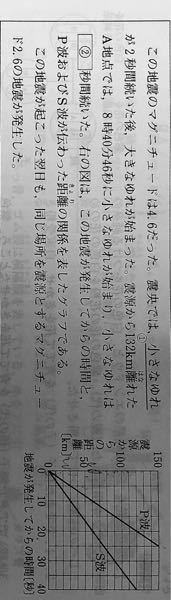 この地震のマグニチュードは4.6だった。震央では、①小さなゆれ
が9秒間続いた後、大きなゆれが始まった。震源から132km離れた
A地点では、8時40分46秒に小さなゆれが始まり、小さなゆれは
② 秒間続いた。右の図は、この地震が発生してからの時間と、
P波およびS波が伝わった距離の関係を表したグラフである。
この地震が起こった翌日も、同じ場所を震源とするマグニチュー
ド2.6の地震が発生した。
震源からの距離
〔km〕
150
100
50
0
P波
S波
0 10 20 30 40
地震が発生してからの時間〔秒〕